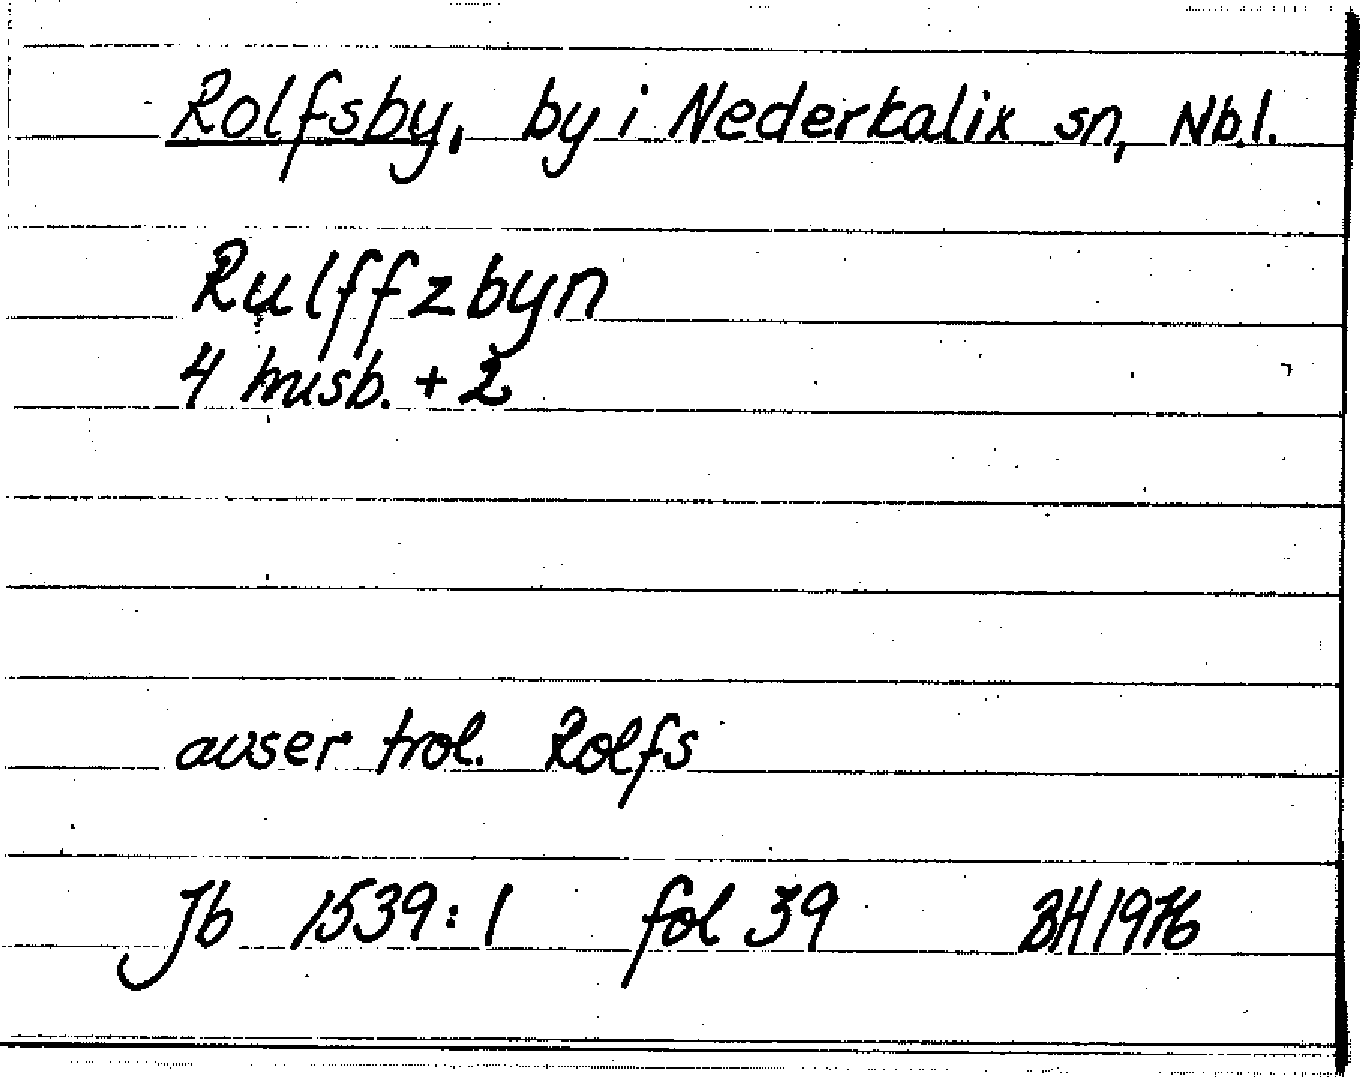 Rolfsby, by i Nederkalix sn, Nb.l.
Rulffzbyn
4 husb. + 2
avser trol. Rolfs
Jb 1539:1 fol 39 BH 1976